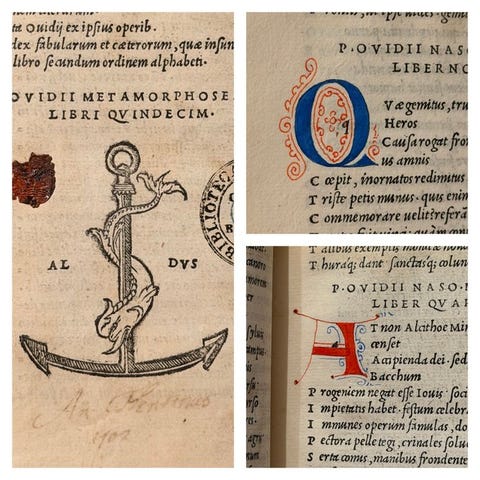 ta Ouidij ex ipsius operib.
dex fabularum et cæterorum, quæ insun
libro secundum ordinem alphabeti.
OVIDII METAMORPHOSE
LIBRI QVINDECIM.
AL DVS
BIBLIOTEC
1702
P. OVIDII NASO
LIBER NO
Q Væ gemitus, tru
q Heros
Causa rogat fron
us amnis
C œpit, inornatos redimitus
T riste petis munus. quis enim
C ommemorare uelit? referā
T alibus exemplis monitæ
T huraq; dant sanctasq; colun
P. OVIDII NASO.
LIBER QVAR
A T non Alcithoe Min
a censet
Accipienda dei. sed
Bacchum
P rogeniem negat esse Iouis. soci
I mpietatis habet. festum celebra
I mmunes operum famulas, do
P ectora pelle tegi, crinales solu
S erta comis, manibus frondente